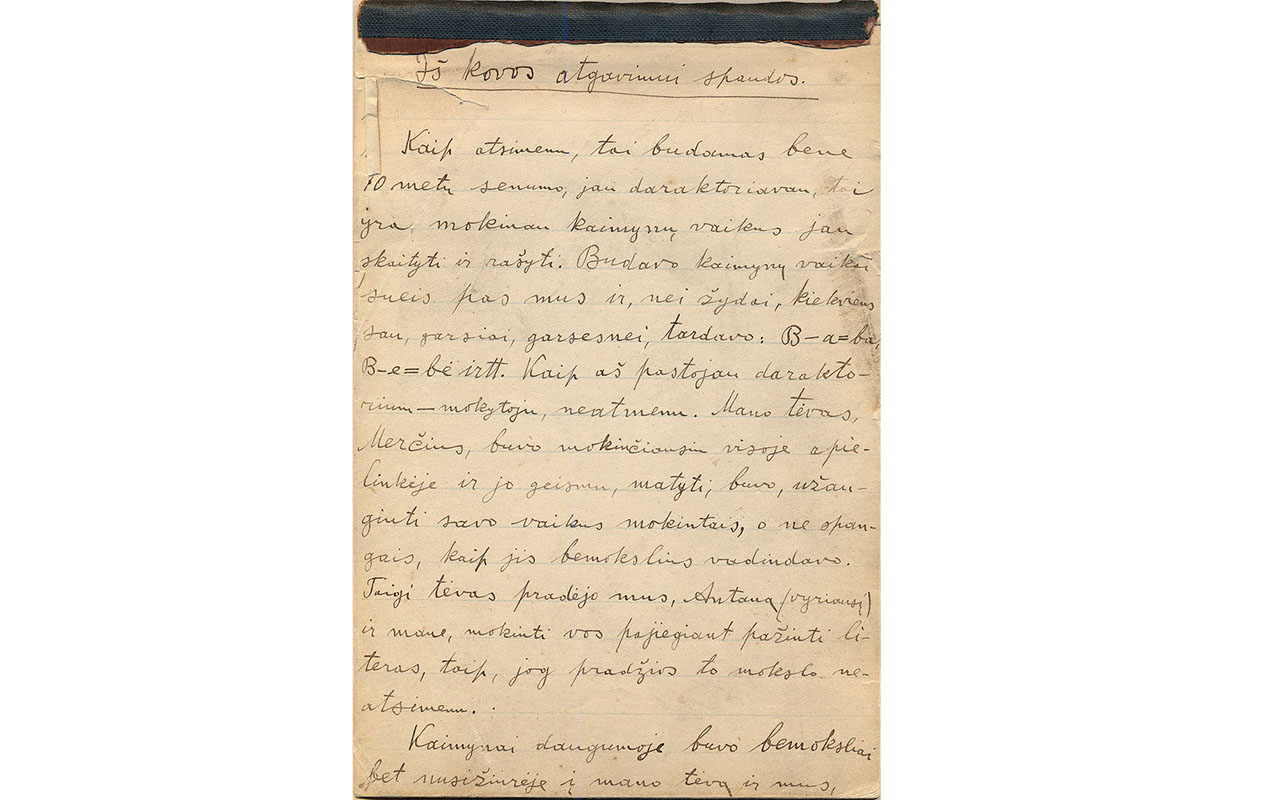 Iš kovos atgavimui spaudos.
Kaip atsimenu, tai budamas bene
10 metų senumo, jau daraktoriavau, tai
yra, mokinau kaimynų vaikus jau
skaityti ir rašyti. Budavo kaimynų vaikai
sueis pas mus ir, nei žydai, kiekviens
sau, garsiai, garsesnei, tardavo: B–a=ba,
B–e=bė irtt. Kaip aš pastojau darakto–
rium – mokytoju, neatmenu. Mano tėvas,
Merčius, buvo mokinčiausiu visoje apie–
linkėje ir jo geismu, matyti, buvo, užau–
ginti savo vaikus mokintais, o ne span–
gais, kaip jis bemokslius vadindavo.
Taigi tėvas pradėjo mus, Antaną (vyriausį)
ir mane, mokinti vos pajiegiant pažinti li–
teras, taip, jog pradžios to mokslo ne–
atsimenu.
Kaimynai daugumoje buvo bemoksliai
bet nusižiurėję į mano tėvą ir mus,